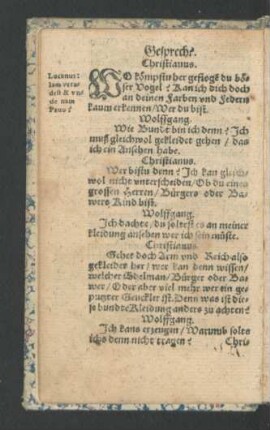 Gespreche.
Christianus.
WO kömpstu her gefloge du bö
ser Vogel? Kan ich dich doch
an deinen Farben vnd Federn
kaum erkennen / Wer du bist.
Wolffgang.
Wie Bunde bin ich denn? Ich
muß gleichwol gekleidet gehen / das
ich ein Ansehen habe.
Christianus.
Wer bistu denn? Ich kan gleich-
wol nicht vnterscheiden / Ob du eines
grossen Herren / Bürgers oder Ba-
wers Kind bist.
Wolffgang.
Ich dachte / du soltest es an meiner
kleidung ansehen wer ich sein müste.
Christianus.
Gehet doch Arm vnd Reich also
gekleidet her / wer kan denn wissen /
welcher Edelman / Bürger oder Ba
wer / Oder aber viel mehr wer ein ge-
putzter Geuckler ist. Denn was ist die-
se bundte Kleidung anders zu achten?
Wolffgang.
Ich kans erzeugen / Warumb solte
ichs denn nicht tragen?
Chris